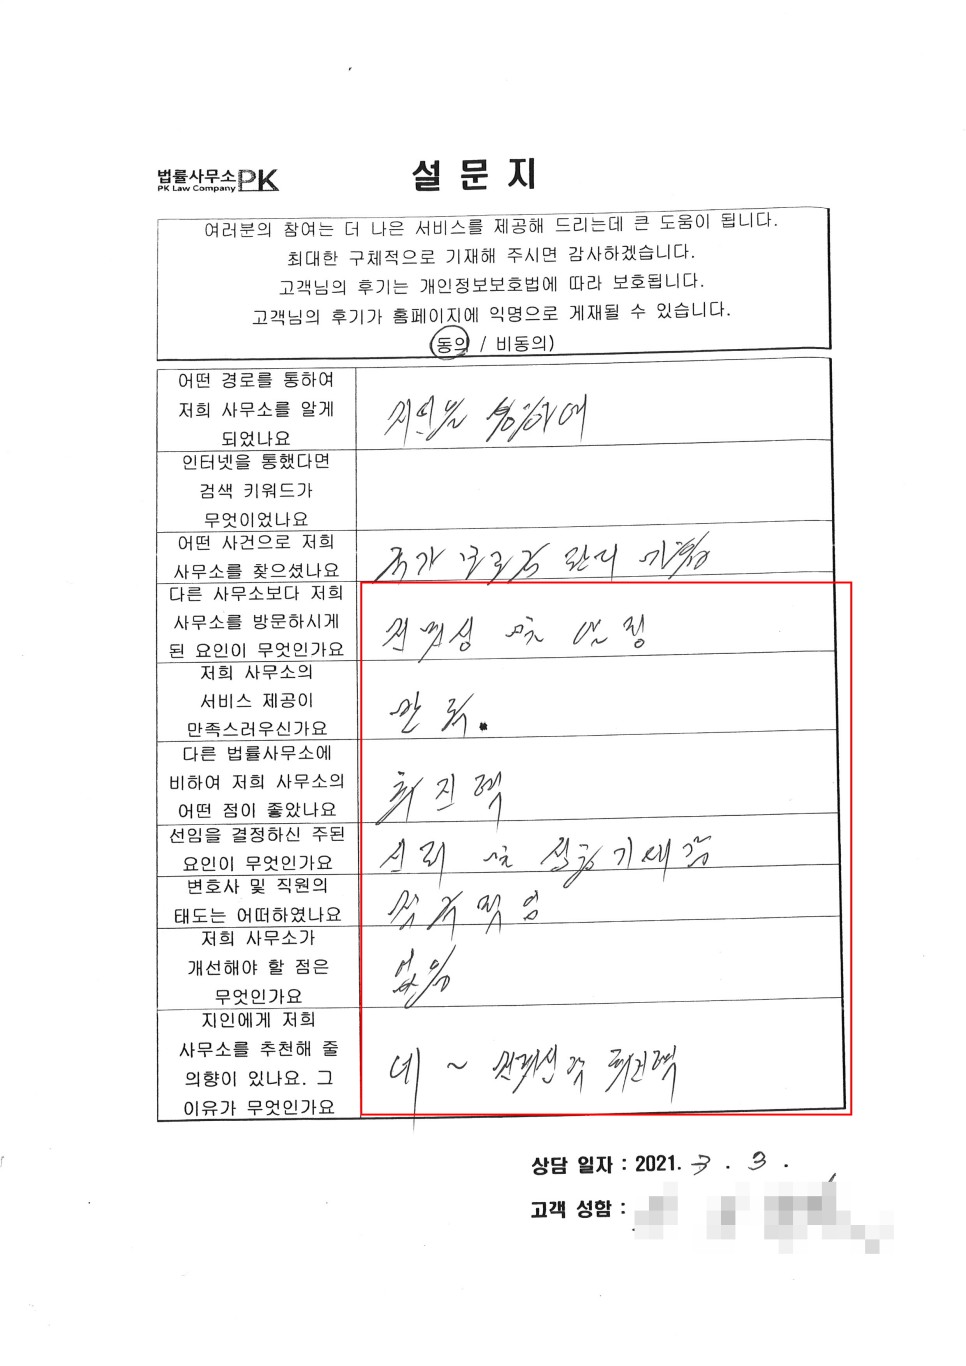 법률사무소 PK
PK Law Company
설문지
여러분의 참여는 더 나은 서비스를 제공해 드리는데 큰 도움이 됩니다.
최대한 구체적으로 기재해 주시면 감사하겠습니다.
고객님의 후기는 개인정보보호법에 따라 보호됩니다.
고객님의 후기가 홈페이지에 익명으로 게재될 수 있습니다.
동의 / 비동의)
어떤 경로를 통하여
저희 사무소를 알게
되었나요
지인을 통하여
인터넷을 통했다면
검색 키워드가
무엇이었나요
어떤 사건으로 저희
사무소를 찾으셨나요
국가 관리
다른 사무소보다 저희
사무소를 방문하시게
된 요인이 무엇인가요
전문성 및 열정
저희 사무소의
서비스 제공이
만족스러우신가요
만족.
다른 법률사무소에
비하여 저희 사무소의
어떤 점이 좋았나요
선임을 결정하신 주된
요인이 무엇인가요
신뢰 및
변호사 및 직원의
태도는 어떠하였나요
적극적임
저희 사무소가
개선해야 할 점은
무엇인가요
없음
지인에게 저희
사무소를 추천해 줄
의향이 있나요. 그
이유가 무엇인가요
네 ~
상담 일자 : 2021. 3 . 3 .
고객 성함 :